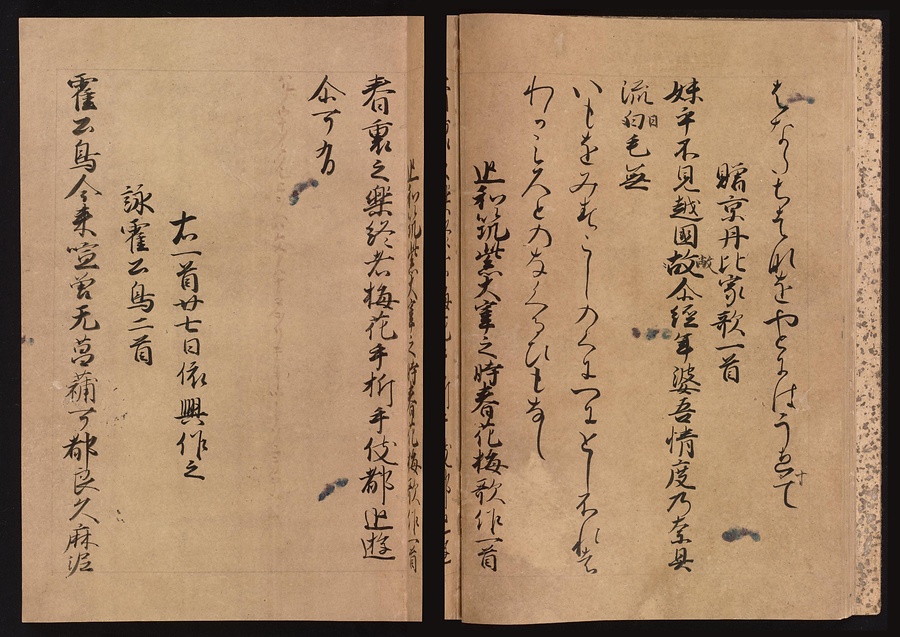 はなたちはなをやとにはうゑすて
贈京丹比家歌一首
妹乎不見越國故敝尓經年婆吾情度乃奈具
流向日毛無
いもをみすこしのくににとしふれは
わかこゝろとのなくるひもなし
追和筑紫大宰之時春花梅歌作一首
春裏之樂終者梅花手折手伎都追遊
尓可有
右一首廿七日依興作之
詠霍公鳥二首
霍公鳥今来喧曽无菖蒲可都良久麻泥